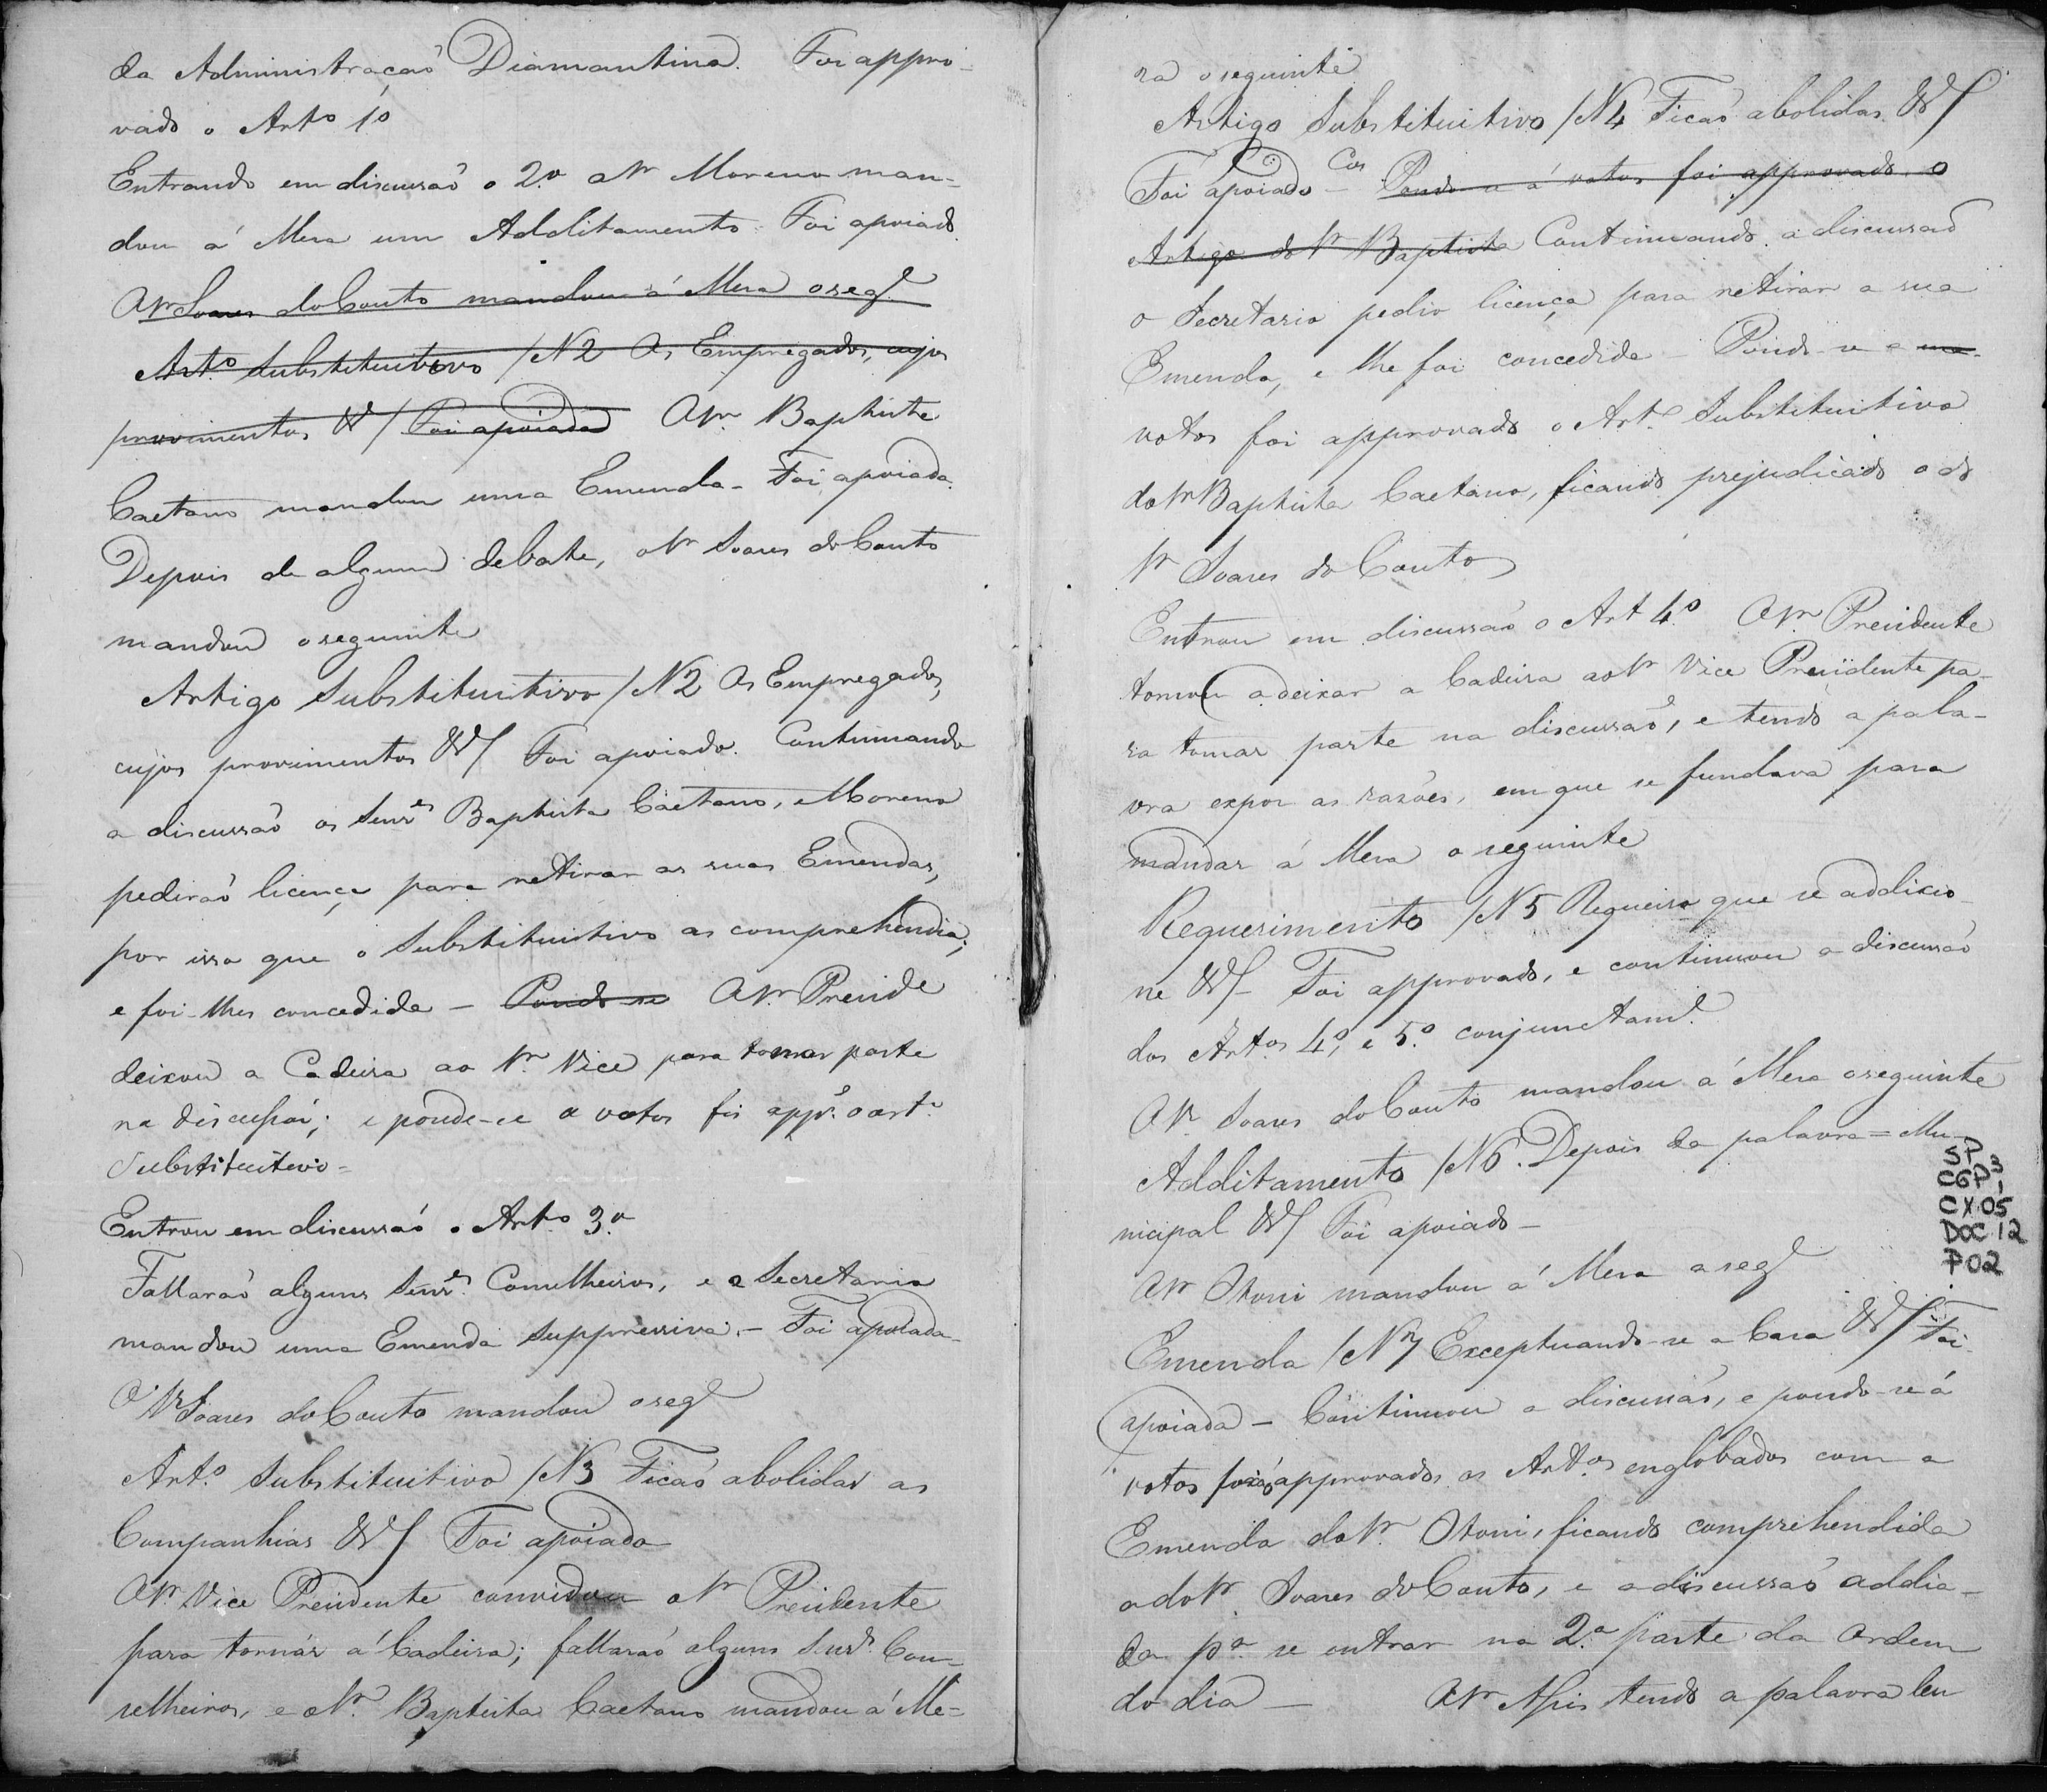 da Administração Diamantina. Foi appro-
vado o Artº 1º
Entrando em discussaõ o 2º o Sr Moreno man-
dou á Mesa um Additamento. Foi apoiado.
O Sr Soares do Couto mandou á Mesa o seg.e
Art.º Substituitivo /N 2 Os Empregados, cujos
provimentos &/ Foi apoiado O Sr. Baptista
Caetano mandou uma Emenda - Foi apoiada.
Depois de algum debate, o Sr Soares do Couto
mandou o seguinte
Artigo Substituitivo /N 2 Os Empregados,
cujos provimentos &/ Foi apoiado. Continuando
a discussaõ os Senr.es Baptista Caetano, e Moreno
pediraõ licença para retirar as suas Emendas,
por isso que o Substituitivo as comprehendia;
e foi-lhes concedida — Pondo-se O Sr. Preside
deixou a Cadeira ao Sr. Vice para tomar parte
na discussaõ; e pondo-se a votos foi appr.º o art.º
Substituitivo =
Entrou em discussaõ o Artº 3.º
Fallaraõ alguns Senr.es Conselheiros, e o Secretario
mandou uma Emenda suppressiva. — Foi apoiada
O Sr Soares do Couto mandou o seg.e
Art.º Substituitivo /N 3 Ficaõ abolidas as
Companhias &/ Foi apoiado
O Sr. Vice Presidente convidou o Sr Presidente
para tornár á Cadeira; fallaraõ alguns Snr.es Con-
selheiros, e o Sr. Baptista Caetano mandou á Me-
sa o seguinte
Artigo Substituitivo /N 4 Ficaõ abolidas &/
Foi apoiado — Con Pondo-se á votos foi approvado o
Artigo do Sr Baptista Continuando a discussaõ
o Secretario pedio licença para retirar a sua
Emenda, e lhe foi concedida — Pondo-se a
votos foi approvado o Art.º Substituitivo
do Sr Baptista Caetano, ficando prejudicado o do
Sr Soares do Couto
Entrou em discussaõ o Art 4.º O Sr. Presidente
tornou a deixar a Cadeira ao Sr Vice Presidente pa-
ra tomar parte na discussaõ, e tendo a pala-
vra expoz as razões, em que se fundava para
mandar á Mesa o seguinte
Requerimento /N 5 Requeiro que se addicio-
ne &/ - Foi approvado, e continuou a discussaõ
dos Art.os 4º, e 5.º conjunctam.e
O Sr. Soares do Couto mandou á Mesa o seguinte
Additamento /N 6. Depois da palavra = Mu-
nicipal &/ Foi apoiado —
O Sr Otoni mandou á Mesa a seg.e
Emenda /N 7 Exceptuando-se a Casa &/ Foi
apoiada — Continuou a discussaõ, e pondo-se á
votos foraõ approvados os Art.os englobados com a
Emenda do Sr. Otoni, ficando comprehendida
a do Sr. Soares do Couto, e a discussaõ addia-
da p.a se entrar na 2.ª parte da Ordem
do dia — O Sr Assis tendo a palavra leu
SP
CGP 3
CX.05
DOC.12
P02